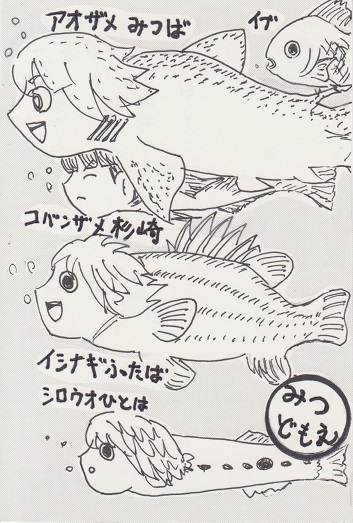 アオザメ みつば
イブ
コバンザメ杉崎
イシナギふたば
シロウオひとは
みつ
どもえ